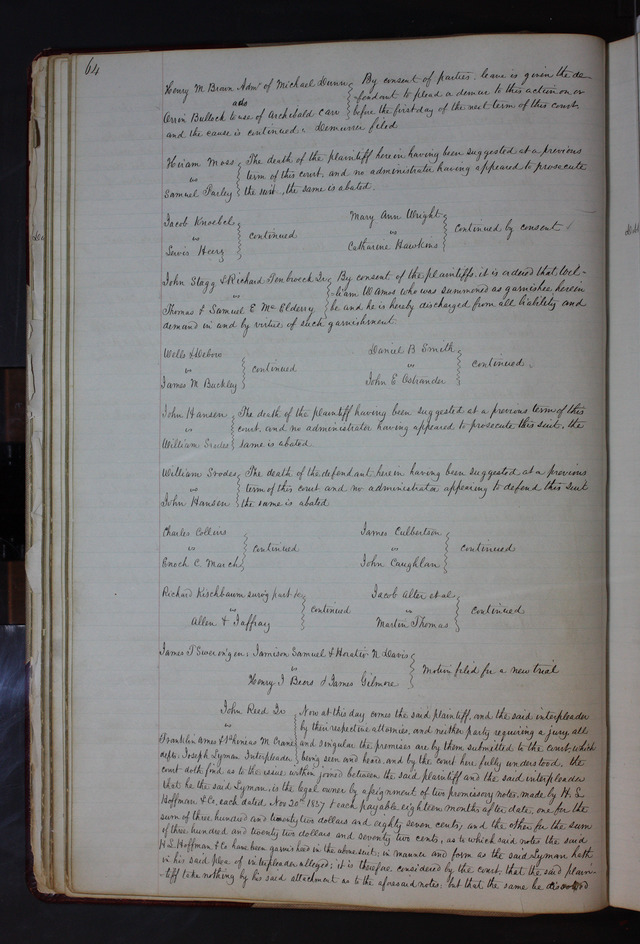 64
Henry M. Brown Adm'r of Michael Dunn By consent of parties, leave is given the de-
ads fendant to plead a demur to this action on or
Orrin Bullock to use of Archibald Carr before the first day of the next term of this court
and the cause is continued. Demurrer filed
Hiram Moss The death of the plaintiff herein having been suggested at a previous
vs term of this court, and no administrator having appeared to prosecute
Samuel Farley the suit, the same is abated.
Jacob Knoebel
vs continued
Lewis Heerz
Mary Ann Wright
vs continued by consent
Catharine Hawkins
John Stagg & Richard Tenbroeck Jr By consent of the plaintiffs, it is ordered that Wil-
vs liam W Amos who was summoned as garnishee herein
Thomas & Samuel E McElderry be and he is hereby discharged from all liability and
demand in and by virtue of such garnishment
Wells &
vs continued
James M. Buckley
Daniel B Smith
vs continued.
John E Ostrander
John Hansen The death of the plaintiff having been suggested at a previous term of this
vs court, and no administrator having appeared to prosecute this suit, the
William Strodes same is abated
William Strodes The death of the defendant herein having been suggested at a previous
vs term of this court and no administrator appearing to defend this suit
John Hansen the same is abated
Charles Collins
vs continued
Enoch C. March
James Culbertson
vs continued
John Caughlan
Richard Kischbaum surv'g part &c
vs continued
Allen & Jaffray
Jacob Alter et al
vs continued
Martin Thomas
James T Sweringen, Jamison Samuel & Horatio N Davis
vs Motion filed for a new trial
Henry J Beers & James Gilmore
John Reed Jr Now at this day comes the said plaintiff, and the said interpleader
vs by their respective attornies, and neither party requiring a jury, all
Franklin Ames & Thomas M. Crane and singular the premises are by them submitted to the court, which
defts. Joseph Lyman Interpleader being seen and heard, and by the court here fully understood, the
court doth find as to the issue within joined between the said plaintiff and the said interpleader
that he the said Lyman, is the legal owner by assignment of two promissory notes, made by H. L
Hoffman & Co, each dated Nov 20th 1837, & each payable eighteen months after date, one for the
sum of three hundred and twenty two dollars and eighty seven cents, and the other for the sum
of three hundred and twenty two dollars and seventy two cents, as to which said notes the said
H L. Hoffman & Co have been garnisheed in the above suit; in manner and form as the said Lyman hath
in his said plea of interpleader alleged; it is therefore considered by the court, that the said plain-
tiff take nothing by his said attachment as to the aforesaid notes; but that the same be dissolved